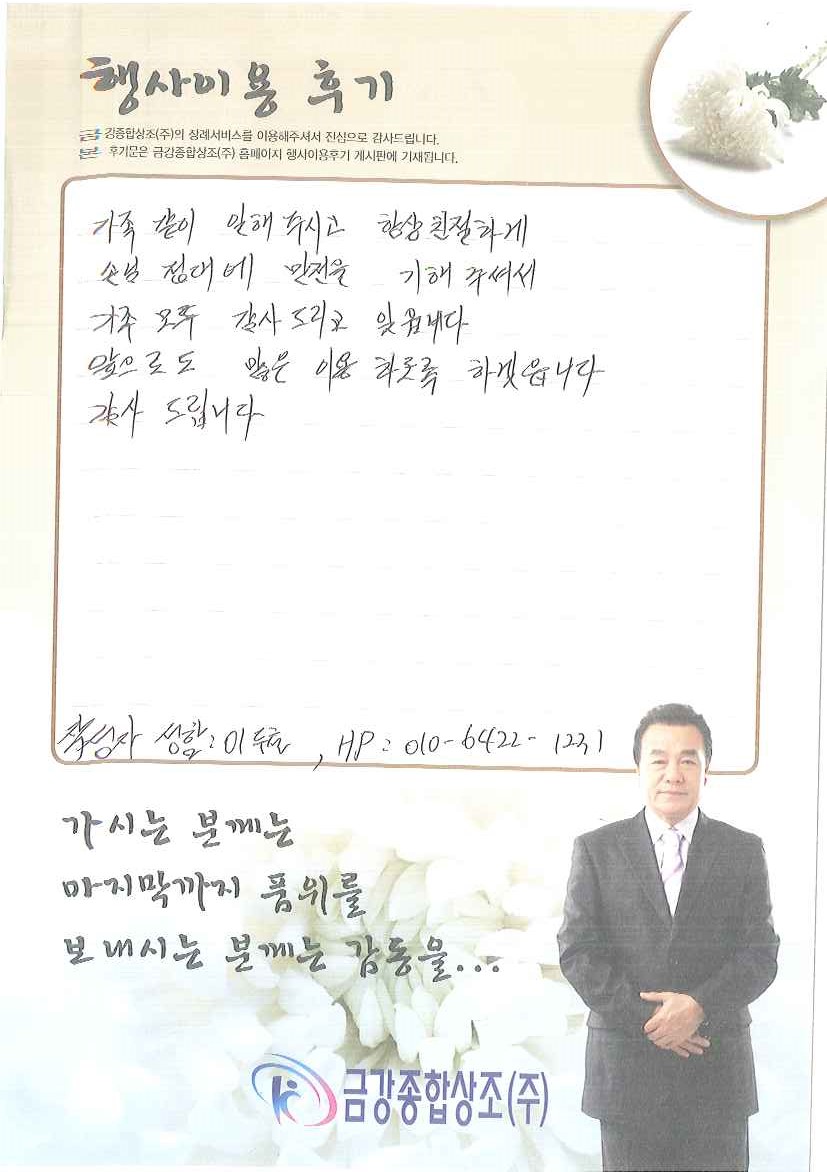 행사이용 후기
금강종합상조(주)의 장례서비스를 이용해주셔서 진심으로 감사드립니다.
본 후기문은 금강종합상조(주) 홈페이지 행사이용후기 게시판에 기재됩니다.
가족 같이 일해 주시고 항상 친절하게
손님 접대에 만전을 기해 주셔서
가족 모두 감사 드리고 있읍니다
앞으로도 많은 이용 하도록 하겠읍니다
감사 드립니다
작성자 성함: 이두, HP: 010-6422-1231
가시는 분께는
마지막까지 품위를
보내시는 분께는 감동을...
금강종합상조(주)